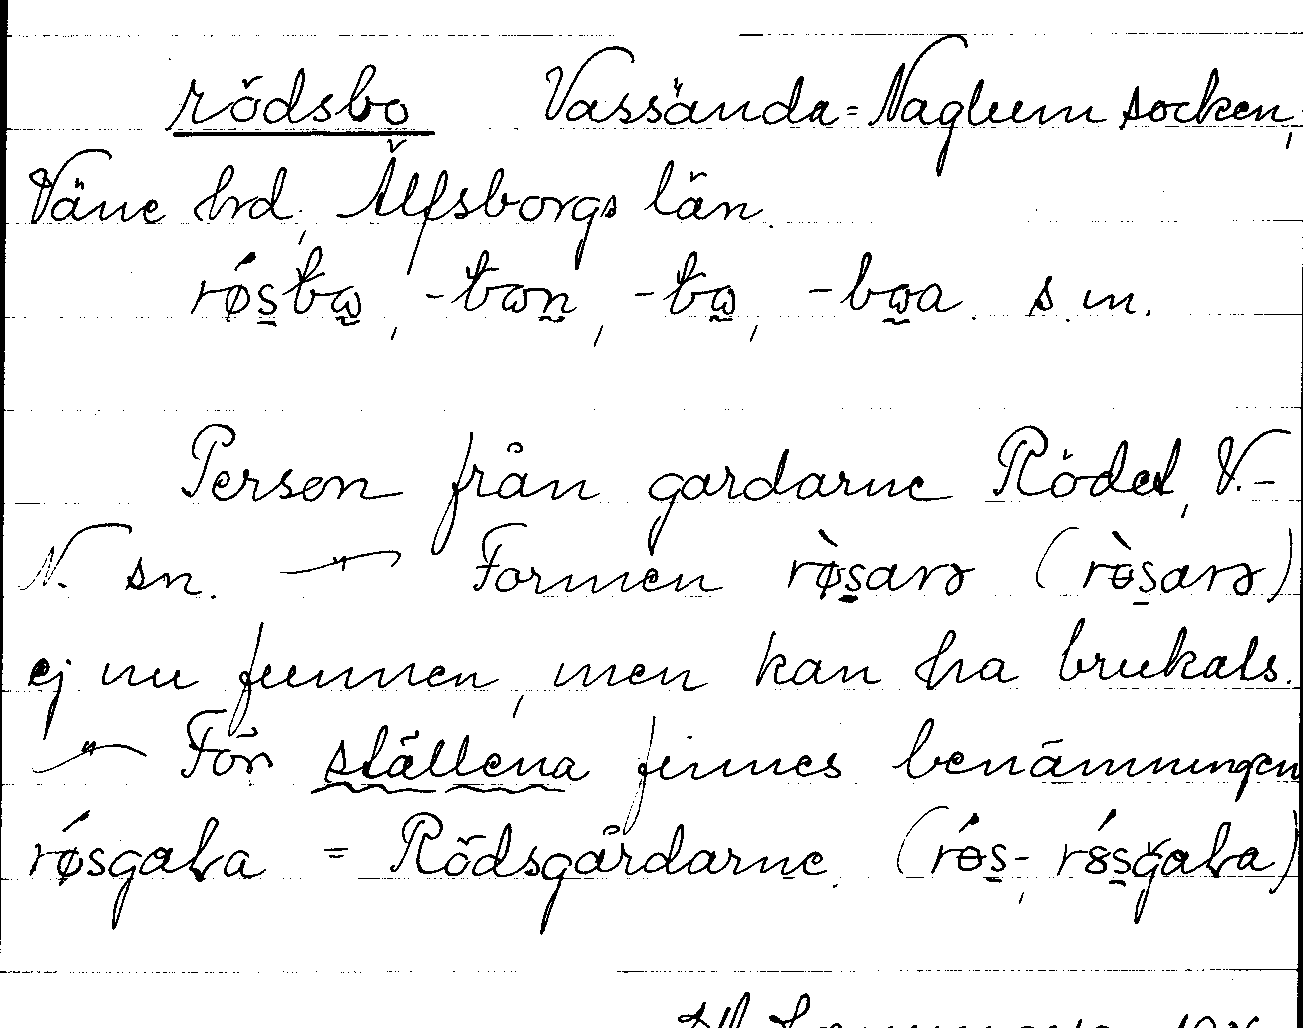 rödsbo Vassända-Naglum socken,
Väne hrd, Älfsborgs län.
rǿsbω, -bωn, -bω, -bωa. s.m.
Person från gardarne Rödet, V.-
N. sn. — Formen rø̀sarə (rɵ̀sarə)
ej nu funnen, men kan ha brukats.
— För ställena finnes benämningen
rǿsgaɫa = Rödsgårdarne. (rɵ́s-, rósgaɫa)